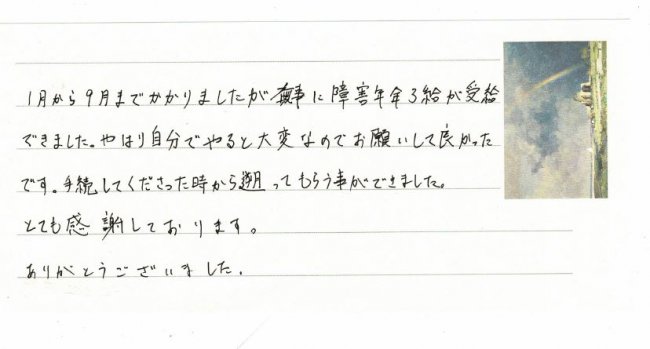 1月から9月までかかりましたが無事に障害年金3給が受給
できました。やはり自分でやると大変なのでお願いして良かった
です。手続してくださった時から遡ってもらう事ができました。
とても感謝しております。
ありがとうございました。